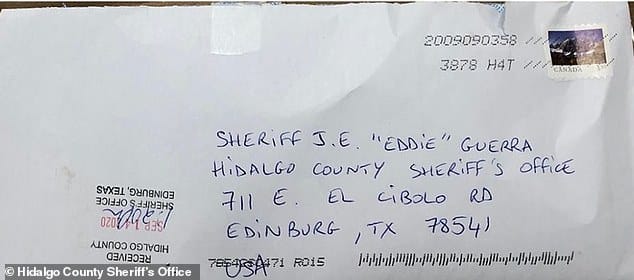 2009090358
3878 H4T
CANADA
SHERIFF J.E. "EDDIE" GUERRA
HIDALGO COUNTY SHERIFF'S OFFICE
711 E. EL CIBOLO RD
EDINBURG, TX 78541
USA
R015
RECEIVED
HIDALGO COUNTY
SEP 14 2020
SHERIFF'S OFFICE
EDINBURG, TEXAS
© Hidalgo County Sheriff's Office